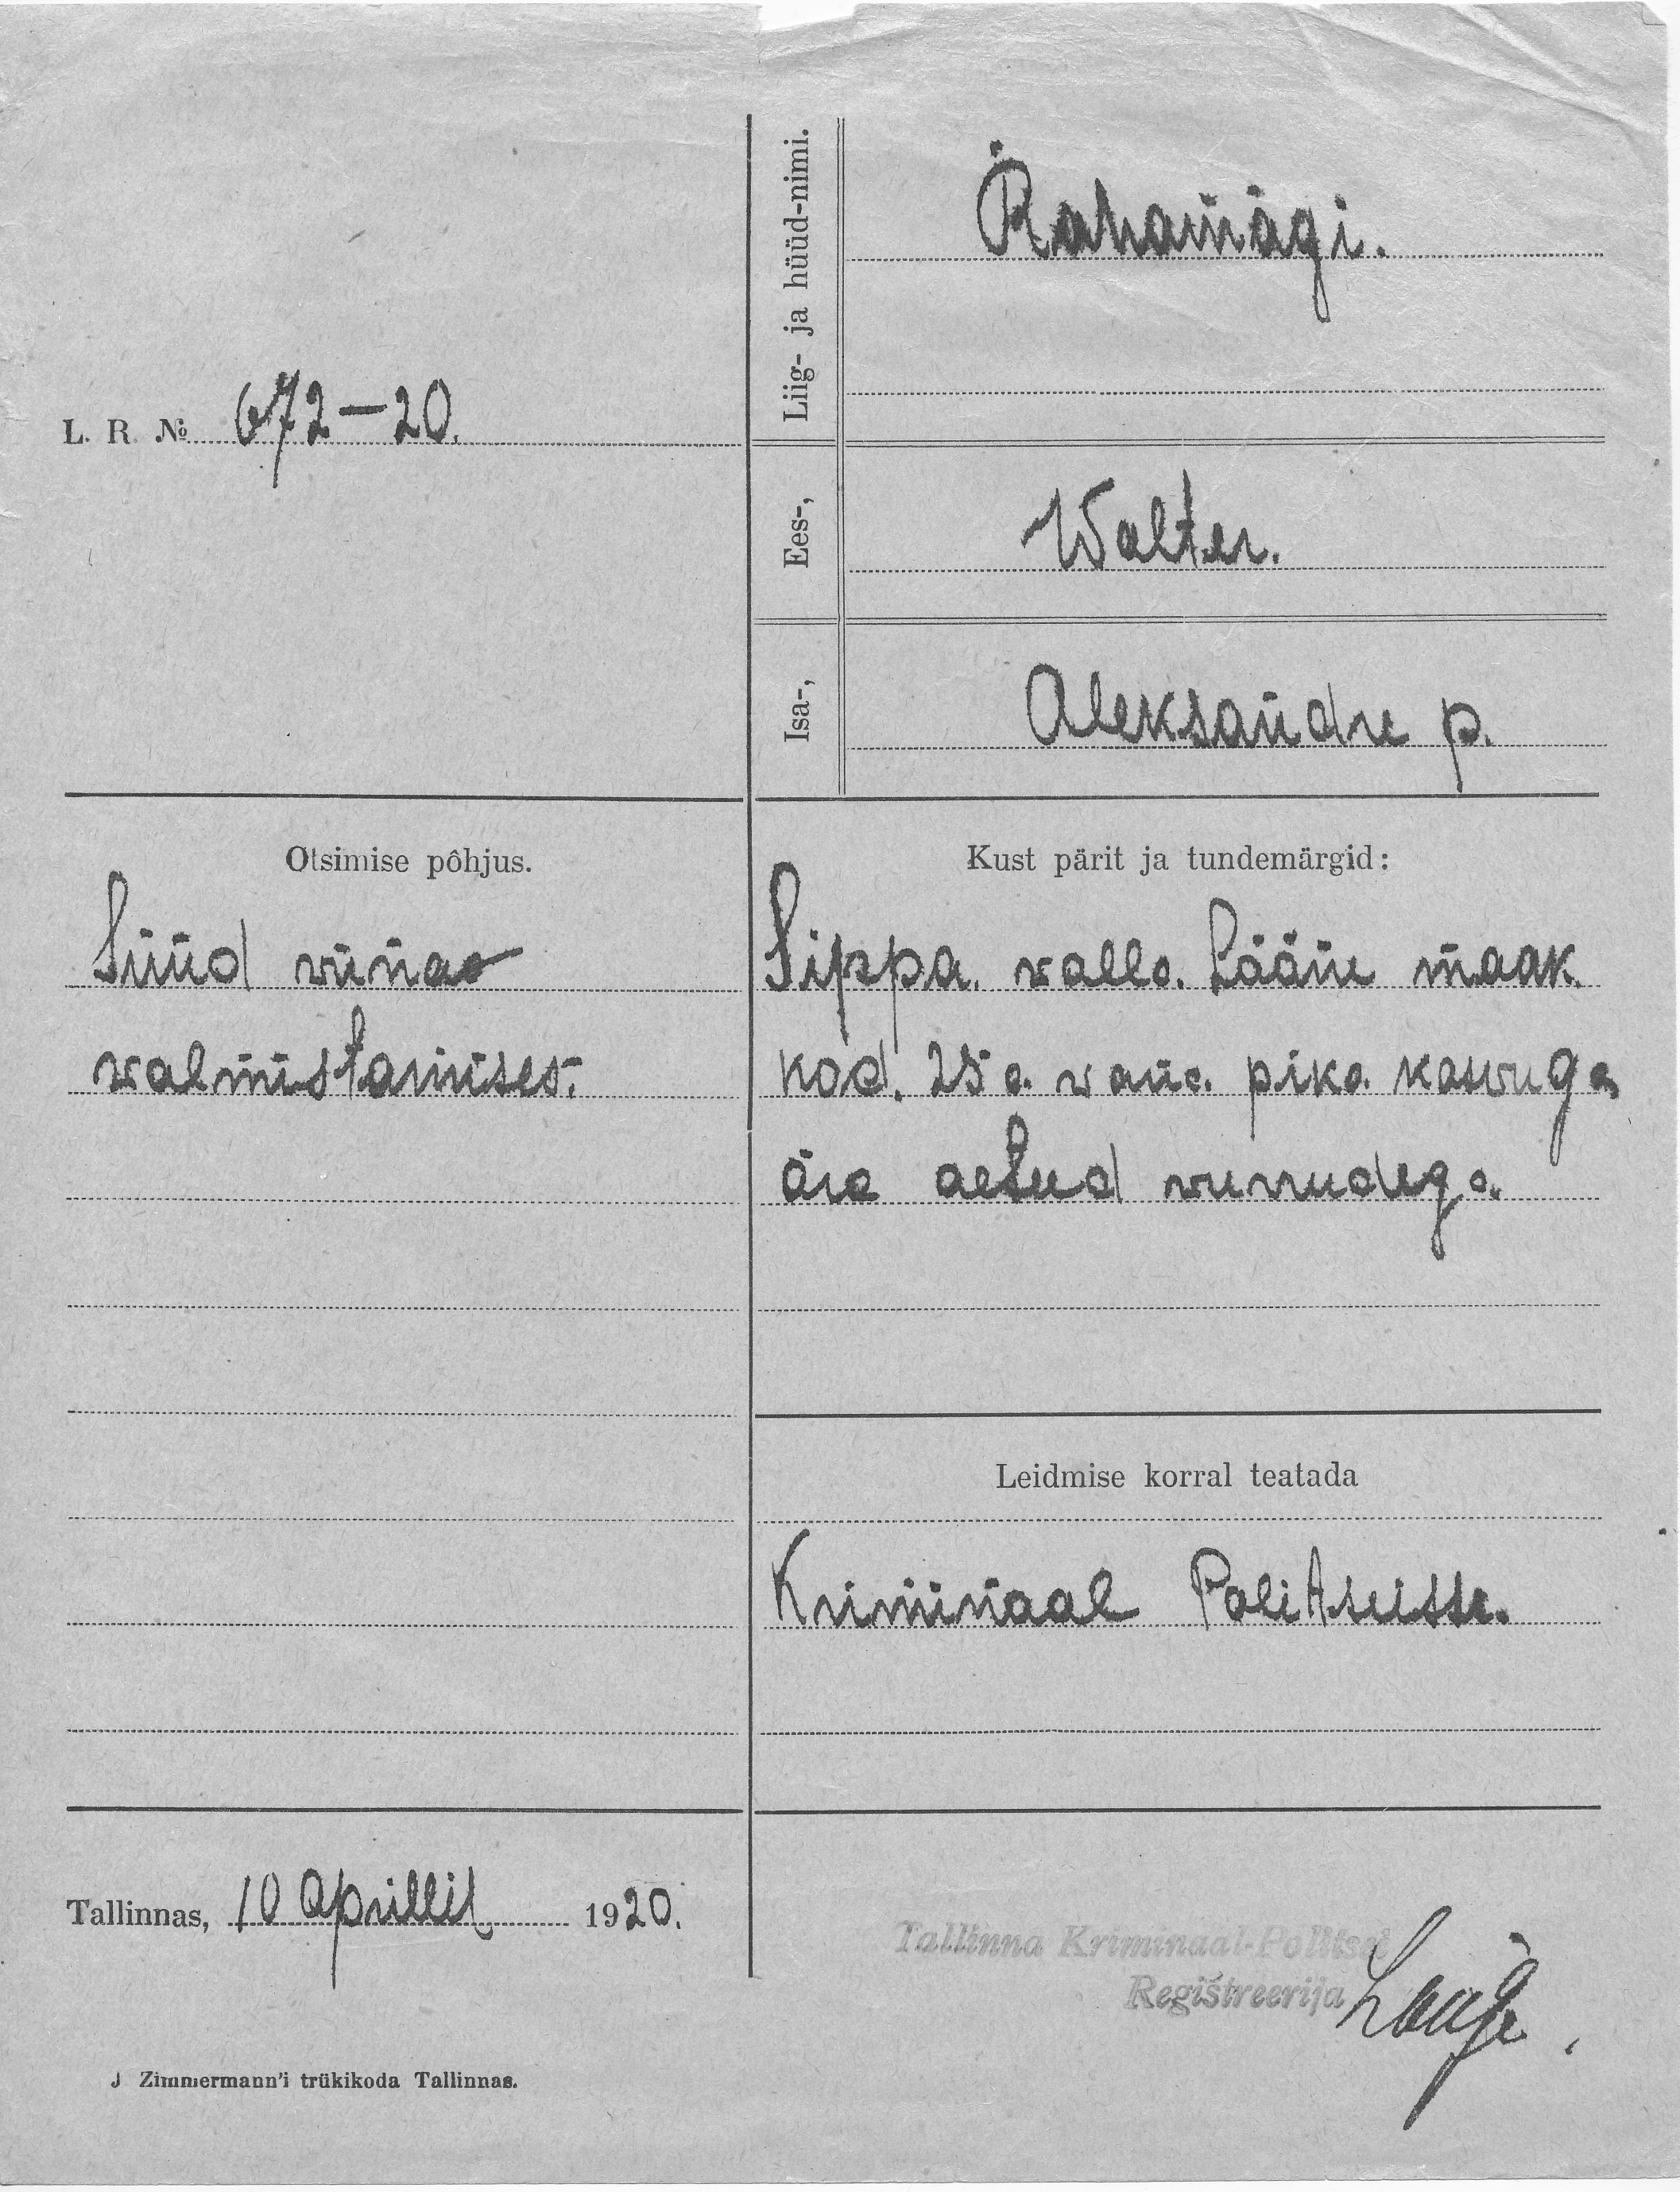 Liig- ja hüüd-nimi.
Rahamägi.
L. R. № 672-20.
Ees-,
Walter.
Isa-,
Aleksandre p.
Otsimise põhjus.
Süüd viinas
valmistamises.
Kust pärit ja tundemärgid:
Sippa. valla. Lääne maak.
kod. 25 a. vana. pika kasvuga
ära aetud vurrudega.
Leidmise korral teatada
Kriminaal Politseisse.
Tallinnas, 10 Aprillil 1920.
Tallinna Kriminaal-Politsei
Registreerija
J Zimmermann'i trükikoda Tallinnas.